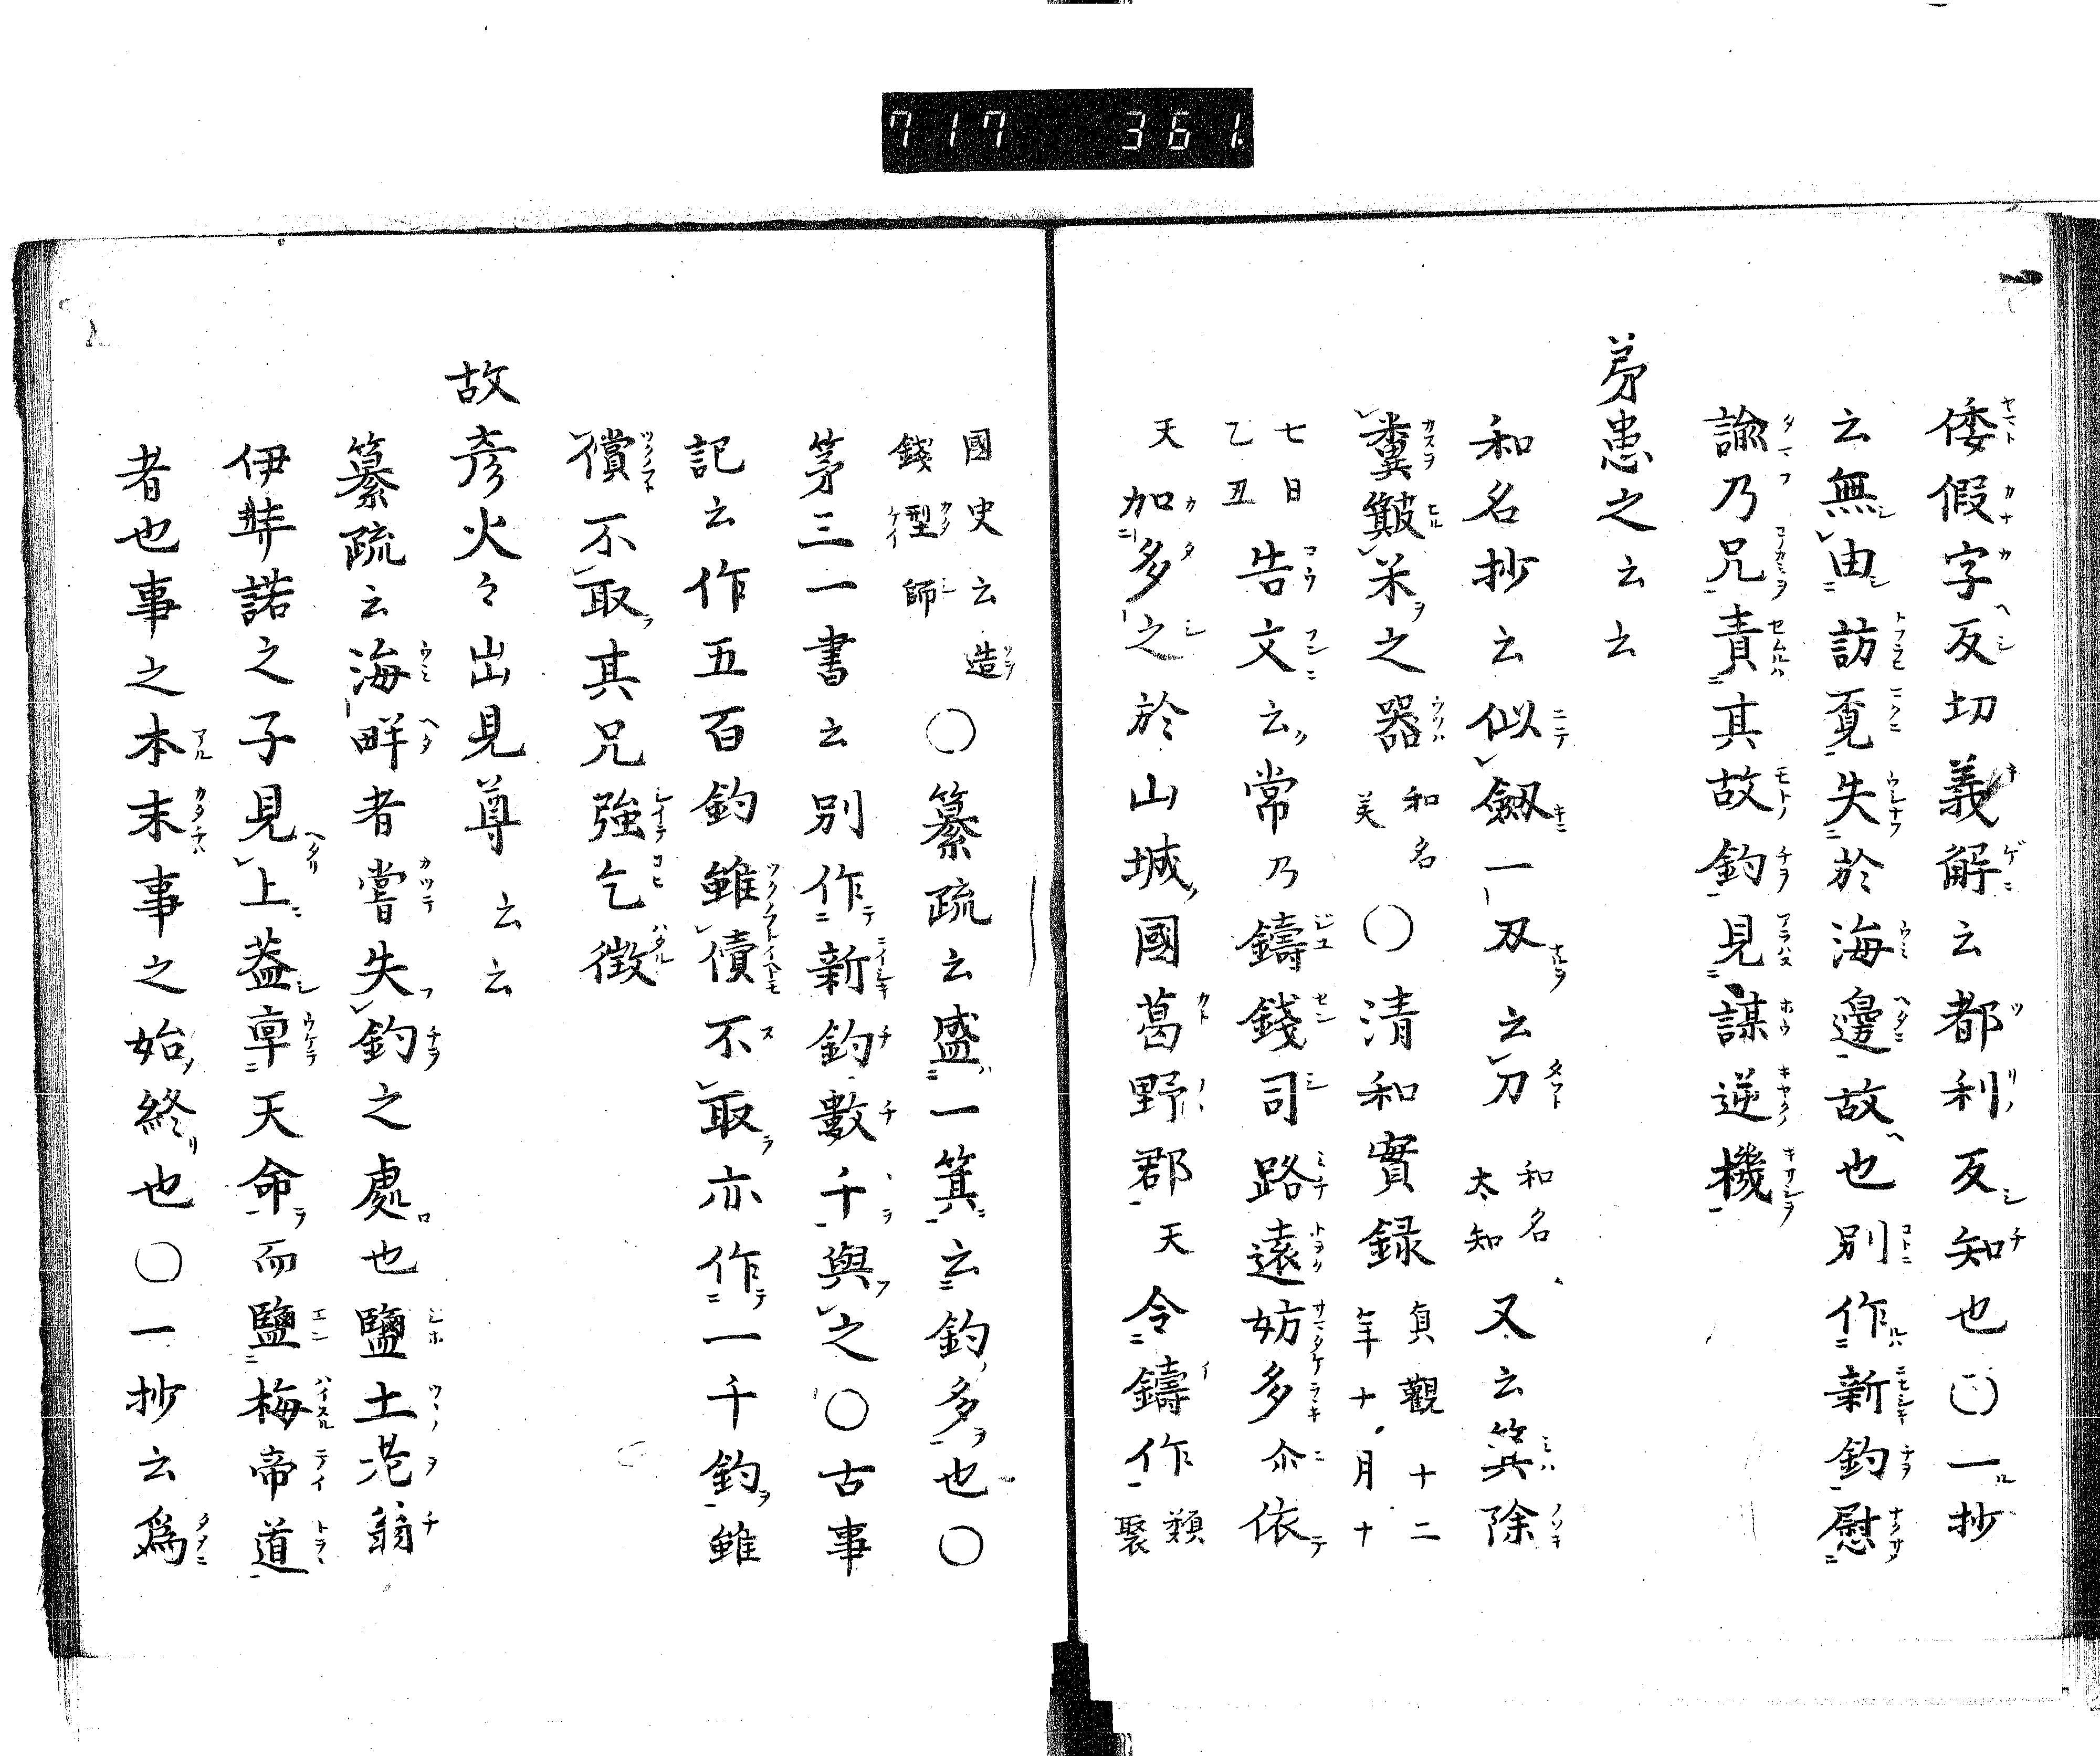 717 361.
倭假字反切義解云都利反知也〇一抄
云無由訪覔失於海邊故也別作新釣慰
諭乃兄責其故釣見謀逆機
弟患之云云
和名抄云似劔一刃云刀和名太知又云箕除
糞簸米之器和名美〇清和實録貞觀十二年十一月十
七日乙丑告文云常乃鑄錢司路遠妨多尒依
天加多之於山城國葛野郡天令鑄作類聚
國史云造錢型師〇纂疏云盛一箕云釣多也〇
第三一書云別作新釣數千與之〇古事
記云作五百釣雖償不取亦作一千釣雖
償不取其兄強乞徴
故彦火々出見尊云云
纂疏云海畔者嘗失釣之處也鹽土老翁
伊弉諾之子見上葢亶天命而鹽梅帝道
者也事之本末事之始終也〇一抄云爲